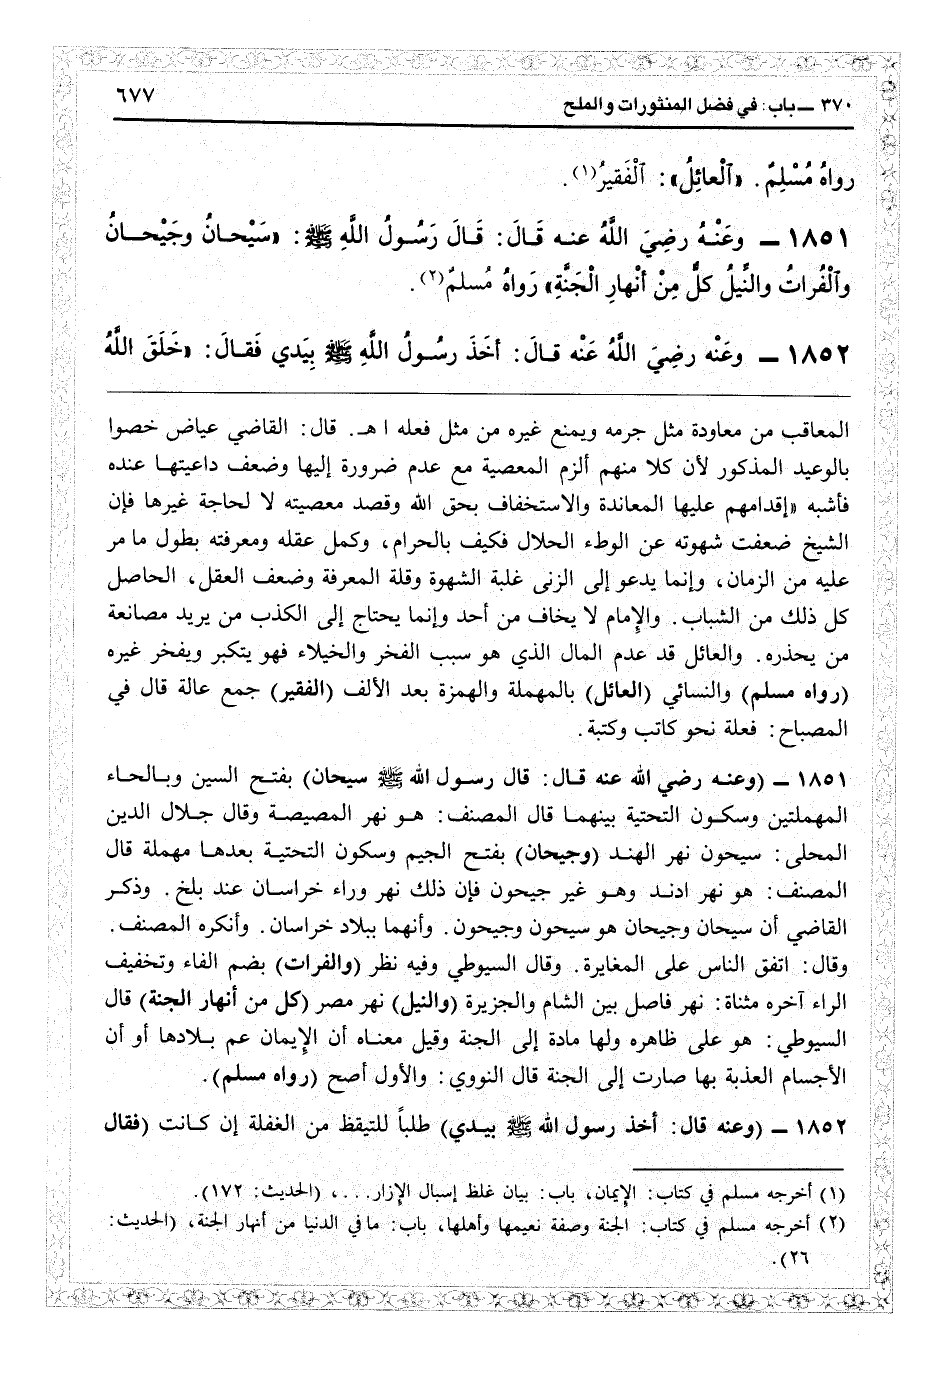 ٣٧٠ ــ باب: في فضل المنثورات والملح
٦٧٧
رواهُ مُسْلِمٌ. «ٱلْعائِلُ»: ٱلْفَقيرُ(١).
١٨٥١ ــ وعَنْـهُ رضِيَ اللَّهُ عنـه قَالَ: قَالَ رَسُـولُ اللَّهِ ﷺ: «سَيْحـانُ وجَيْحـانُ
وٱلْفُراتُ والنِّيلُ كلٌّ مِنْ أنْهارِ الْجَنَّةِ» رَواهُ مُسلمٌ(٢).
١٨٥٢ ــ وعَنْه رضِيَ اللَّهُ عَنْه قالَ: أخَذَ رسُـولُ اللَّهِ ﷺ بِيَدي فَقـالَ: «خَلَقَ اللَّهُ
المعاقب من معاودة مثل جرمه ويمنع غيره من مثل فعله ا هـ. قال: القاضي عياض خصوا
بالوعيد المذكور لأن كلا منهم ألزم المعصية مع عدم ضرورة إليها وضعف داعيتهـا عنده
فأشبه «إقدامهم عليها المعاندة والاستخفاف بحق الله وقصد معصيته لا لحاجة غيرها فإن
الشيخ ضعفت شهوته عن الوطء الحلال فكيف بالحرام، وكمل عقله ومعرفته بطول ما مر
عليه من الزمان، وإنما يدعو إلى الزنى غلبة الشهوة وقلة المعرفة وضعف العقل، الحاصل
كل ذلك من الشباب. والإمام لا يخاف من أحد وإنما يحتاج إلى الكذب من يريد مصانعة
من يحذره. والعائل قد عدم المال الذي هو سبب الفخر والخيلاء فهو يتكبر ويفخر غيره
(رواه مسلم) والنسائي (العائل) بالمهملة والهمزة بعد الألف (الفقير) جمع عالة قال في
المصباح: فعلة نحو كاتب وكتبة.
١٨٥١ ــ (وعنـه رضي الله عنه قـال: قال رسـول الله ﷺ سيحان) بفتـح السين وبـالحـاء
المهملتين وسكـون التحتية بينهمـا قال المصنف: هـو نهر المصيصـة وقال جـلال الدين
المحلي: سيحون نهر الهنـد (وجيحان) بفتـح الجيم وسكون التحتيـة بعدهـا مهملة قال
المصنف: هو نهر ادنـد وهـو غير جيحون فإن ذلك نهر وراء خراسـان عند بلخ. وذكـر
القاضي أن سيحان وجيحان هو سيحون وجيحون. وأنهما ببلاد خراسان. وأنكره المصنف.
وقال: اتفق الناس على المغايرة. وقال السيوطي وفيه نظر (والفرات) بضم الفاء وتخفيف
الراء آخره مثناة: نهر فاصل بين الشام والجزيرة (والنيل) نهر مصر (كل من أنهار الجنة) قال
السيوطي: هو على ظاهره ولها مادة إلى الجنة وقيل معنـاه أن الإيمان عم بـلادها أو أن
الأجسام العذبة بها صارت إلى الجنة قال النووي: والأول أصح (رواه مسلم).
١٨٥٢ ــ (وعنه قال: أخذ رسول الله ﷺ بيـدي) طلباً للتيقظ من الغفلة إن كـانت (فقال
(١) أخرجه مسلم في كتاب: الإيمان، باب: بيان غلظ إسبال الإزار...، (الحديث: ١٧٢).
(٢) أخرجه مسلم في كتاب: الجنة وصفة نعيمها وأهلها، باب: ما في الدنيا من أنهار الجنة، (الحديث:
٢٦).